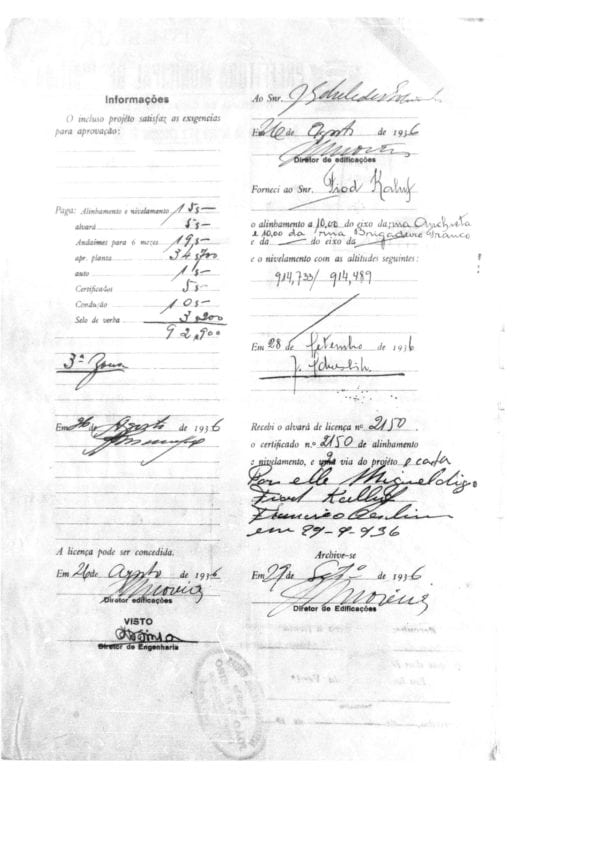 Informações
O incluso projéto satisfaz as exigencias
para aprovação:
Paga: Alinhamento e nivelamento 15$-
alvará 5$-
Andaimes para 6 mezes 19$-
apr. planta 34$700
auto 1$-
Certificados 5$
Condução 10$-
Selo de verba 3.200
92.900
3ª Zona
Em 26 de Agosto de 1936
A licença pode ser concedida.
Em 26 de Agosto de 1936
Moreira
Diretor edificações
VISTO
Diretor de Engenharia
Ao Snr.
Em 26 de Agosto de 1936
Diretor de edificações
Forneci ao Snr. Fiod Kaluf
o alinhamento a 10,00 do eixo da rua Anchieta
e 10,00 da rua Brigadeiro Franco
e da do eixo da
e o nivelamento com as altitudes seguintes:
914,733/ 914,489
Em 28 de Setembro de 1936
Recebi o alvará de licença nº. 2150
o certificado n.º 2150 de alinhamento
e nivelamento, e uma via do projéto e carta
Por elle Migueldigo
Fiod Kalluf
Francisco
em 29-9-936
Archive-se
Em 29 de Set.º de 1936
Moreira
Diretor de Edificações